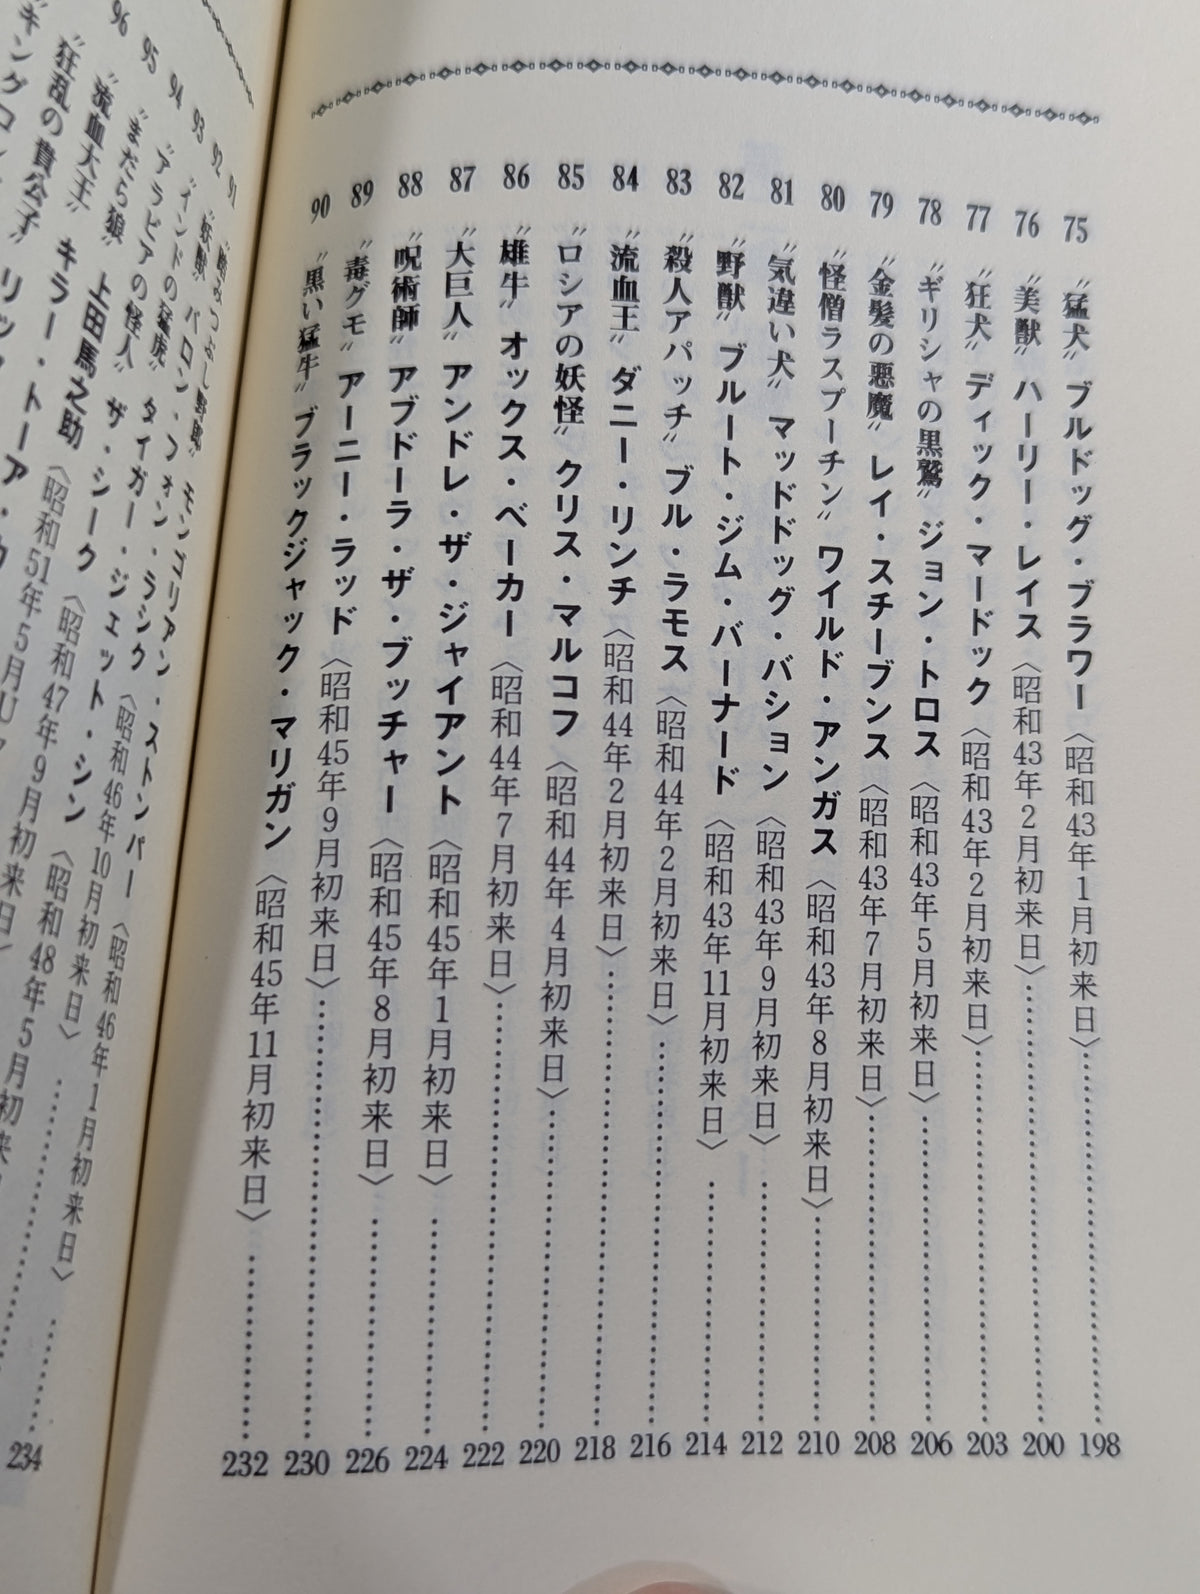 75 〝猛犬〟ブルドッグ・ブラワー〈昭和43年1月初来日〉 198
76 〝美獣〟ハーリー・レイス〈昭和43年2月初来日〉 200
77 〝狂犬〟ディック・マードック〈昭和43年2月初来日〉 203
78 〝ギリシャの黒鷲〟ジョン・トロス〈昭和43年5月初来日〉 206
79 〝金髪の悪魔〟レイ・スチーブンス〈昭和43年7月初来日〉 208
80 〝怪僧ラスプーチン〟ワイルド・アンガス〈昭和43年8月初来日〉 210
81 〝気違い犬〟マッドドッグ・バション〈昭和43年9月初来日〉 212
82 〝野獣〟ブルート・ジム・バーナード〈昭和43年11月初来日〉 214
83 〝殺人アパッチ〟ブル・ラモス〈昭和44年2月初来日〉 216
84 〝流血王〟ダニー・リンチ〈昭和44年2月初来日〉 218
85 〝ロシアの妖怪〟クリス・マルコフ〈昭和44年4月初来日〉 220
86 〝雄牛〟オックス・ベーカー〈昭和44年7月初来日〉 222
87 〝大巨人〟アンドレ・ザ・ジャイアント〈昭和45年1月初来日〉 224
88 〝呪術師〟アブドーラ・ザ・ブッチャー〈昭和45年8月初来日〉 226
89 〝毒グモ〟アーニー・ラッド〈昭和45年9月初来日〉 230
90 〝黒い猛牛〟ブラックジャック・マリガン〈昭和45年11月初来日〉 232
91 〝踏みつぶし野郎〟モンゴリアン・ストンパー〈昭和46年1月初来日〉 234
92 〝妖獣〟バロン・フォン・ラシク〈昭和46年10月初来日〉
93 〝インドの猛虎〟タイガー・ジェット・シン〈昭和48年5月初来
94 〝アラビアの怪人〟ザ・シーク〈昭和47年9月初来日〉
95 〝まだら狼〟上田馬之助〈昭和51年5月U
96 〝流血大王〟キラー・トーア・
〝狂乱の貴公子〟リッ
〝キングコン